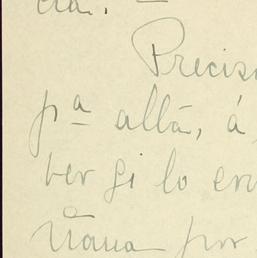 cia. —
Precis
pª allá, á
ver si lo en
ñana por